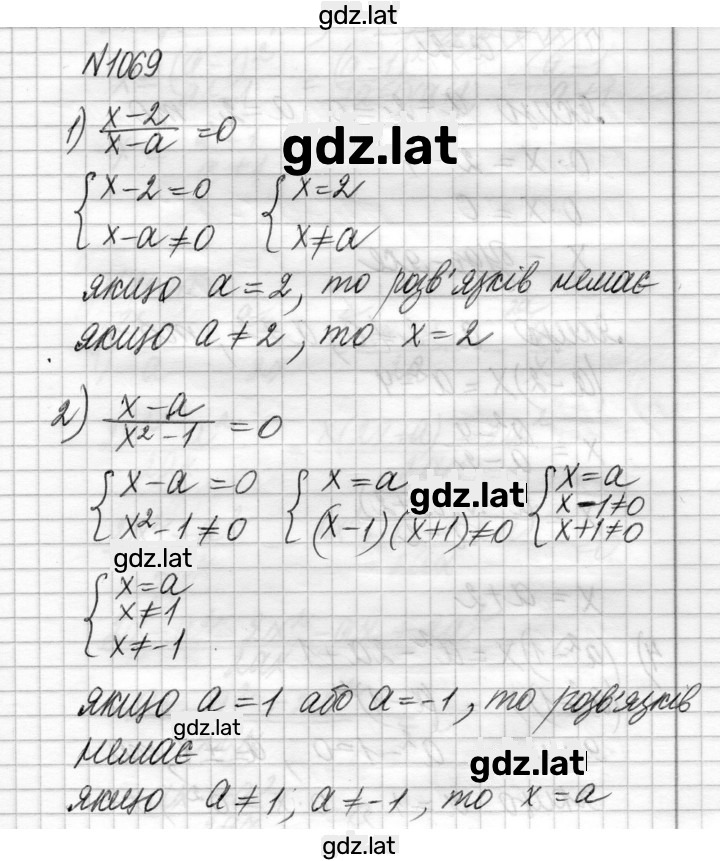 gdz.lat
N1069
1) (x-2)/(x-a) = 0
gdz.lat
{ x-2=0 { x=2
{ x-a≠0 { x≠a
якщо a=2, то розв'язків немає
якщо a≠2, то x=2
2) (x-a)/(x²-1) = 0
{ x-a=0 { x=a { x=a
gdz.lat
{ x²-1≠0 { (x-1)(x+1)≠0 { x-1≠0
{ x+1≠0
gdz.lat
{ x=a
{ x≠1
{ x≠-1
якщо a=1 або a=-1, то розв'язків
gdz.lat
немає
gdz.lat
якщо a≠1, a≠-1, то x=a
gdz.lat